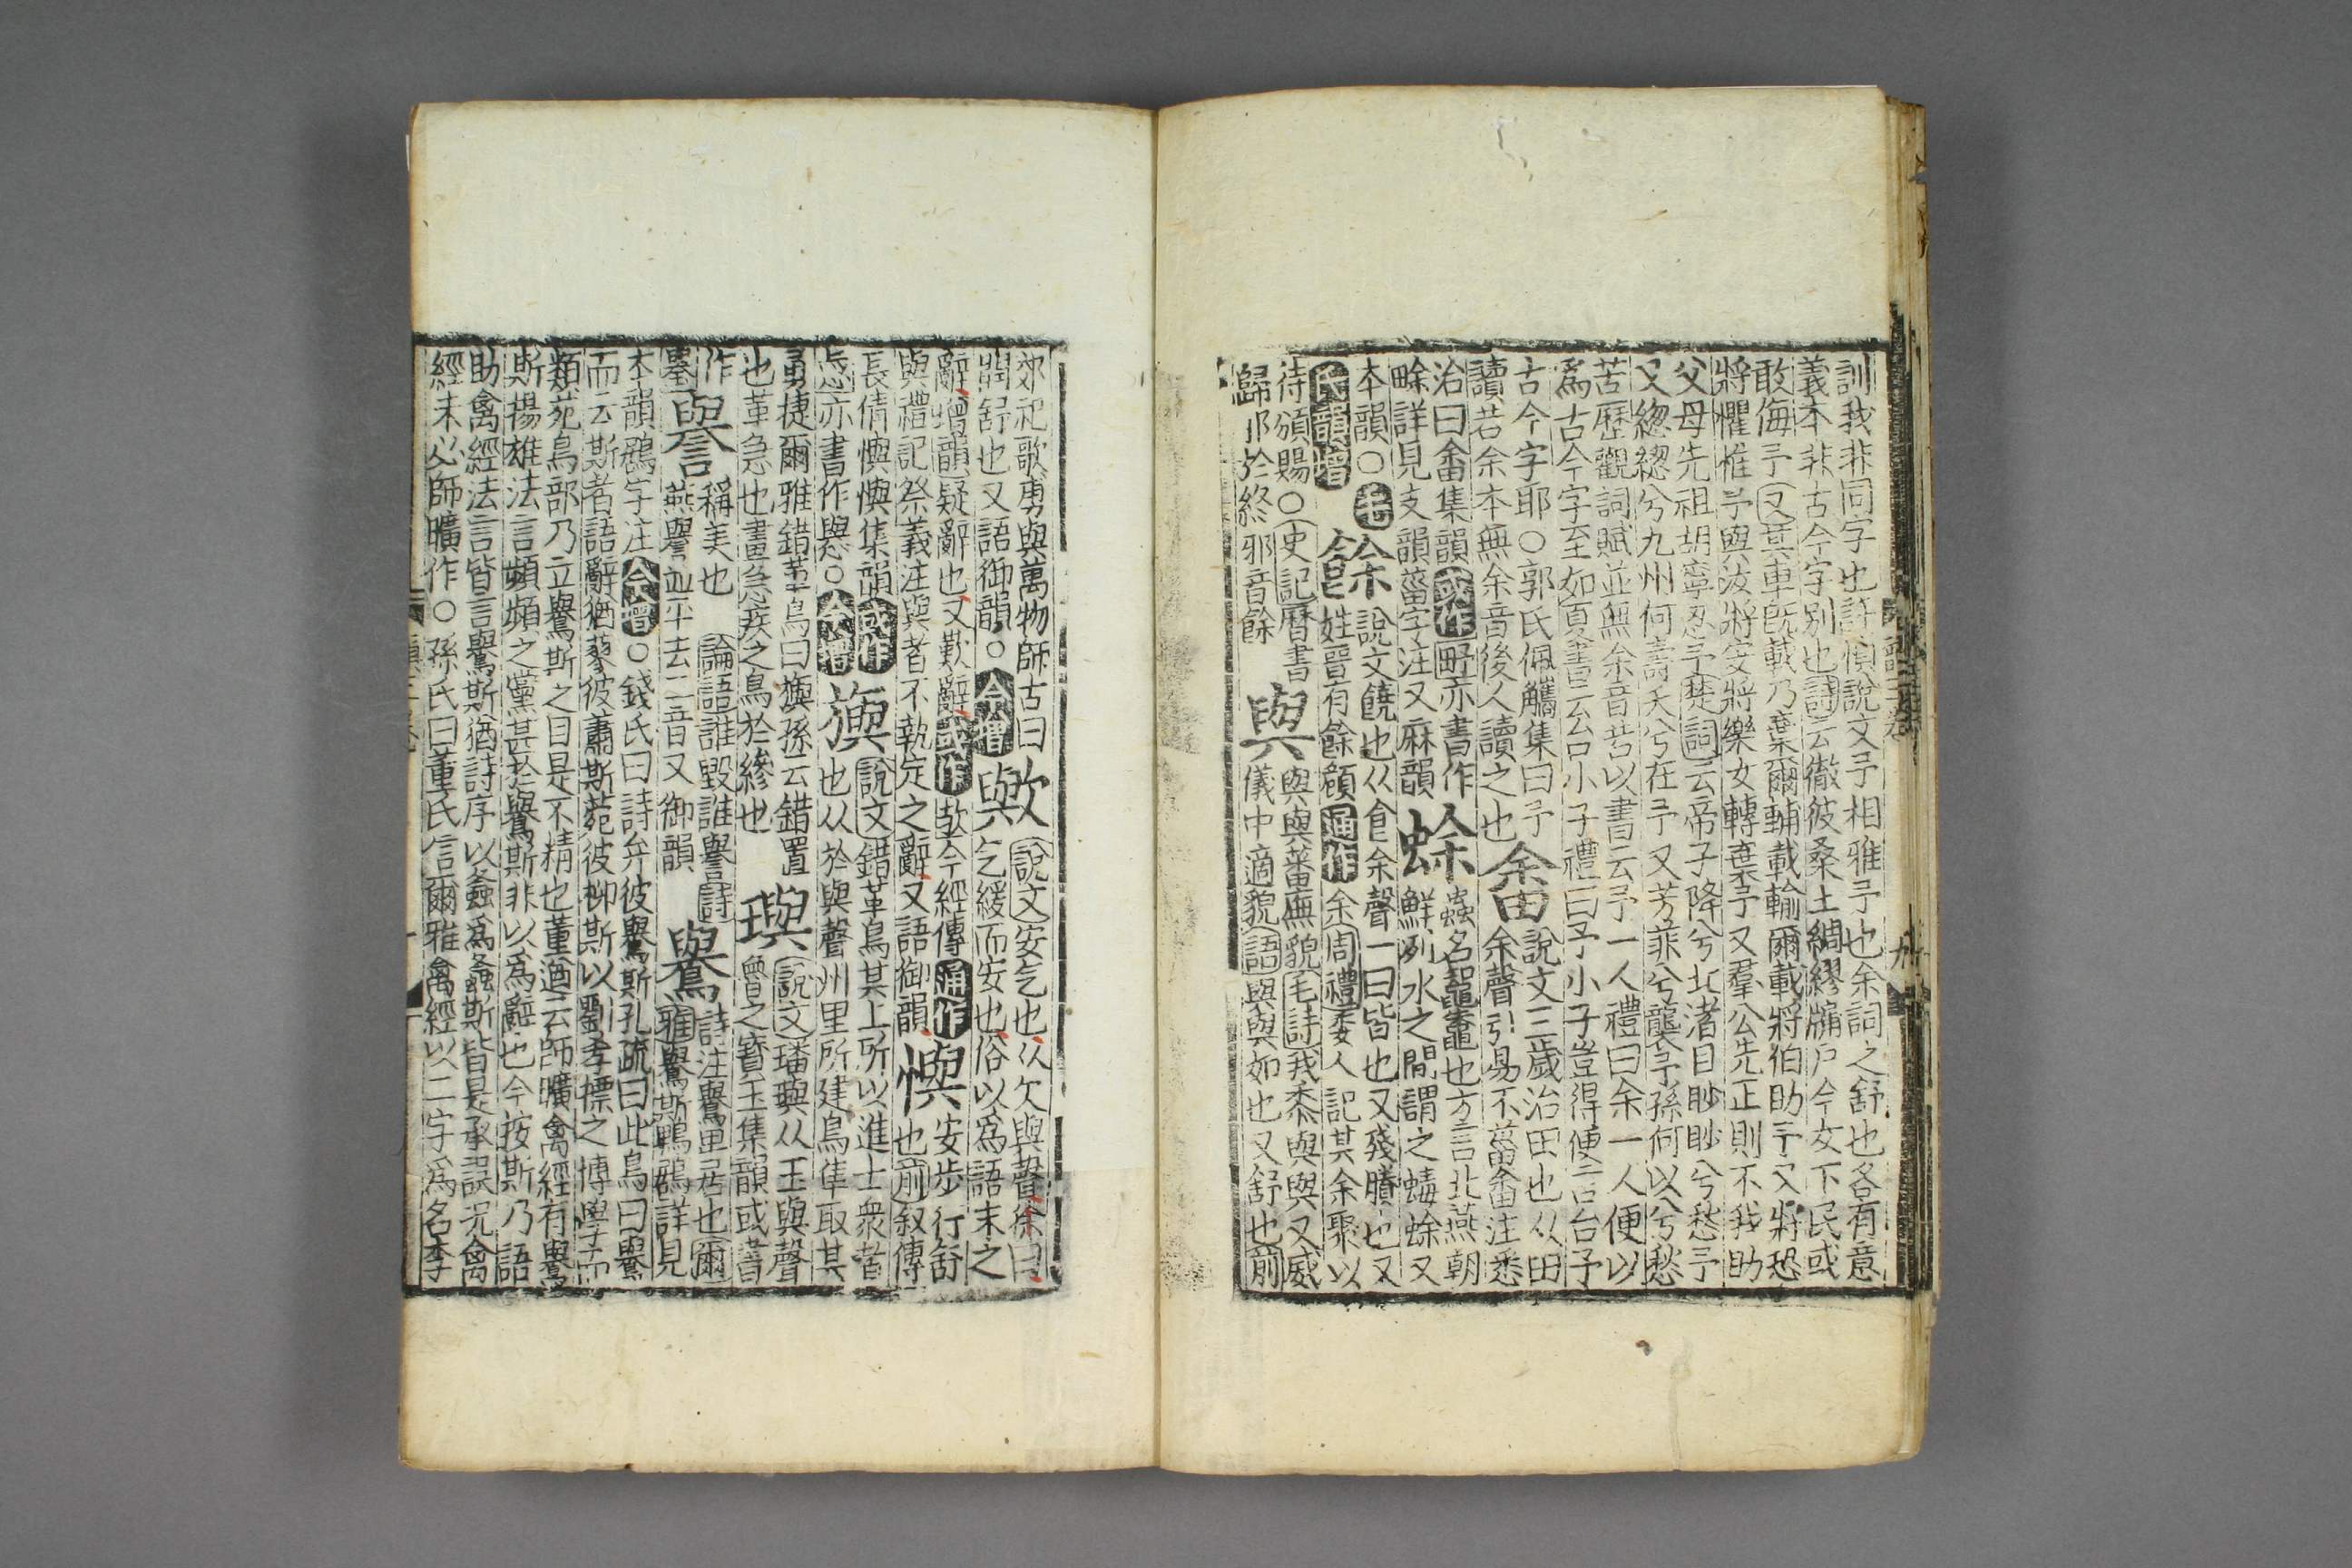 訓我非同字也許慎說文予相推予也余詞之舒也各有意
義本非古今字別也詩云徹彼桑土綢繆牖戶今女下民或
敢侮予又其車既載乃棄爾輔載輸爾載將伯助予又將恐
將懼惟予與汝將安將樂女轉棄予又羣公先正則不我助
父母先祖胡寧忍予楚詞云帝子降兮北渚目眇眇兮愁予
又緫緫兮九州何壽夭兮在予又芳菲兮襲予孫何以兮愁
苦歷觀詞賦並無余音若以書云予一人禮曰余一人便以
爲古今字至如夏書云台小子禮曰予小子豈得便云台予
古今字耶○郭氏佩觿集曰予
讀若余本無余音後人讀之也
畬
說文三歲治田也从田
余聲引易不菑畬注悉
治曰畬集韻或作野亦書作
畭詳見支韻菑字注又麻韻
蜍
蟲名鼅鼄也方言北燕朝
鮮洌水之間謂之蝳蜍又
本韻○毛
氏韻增
餘
說文饒也从食余聲一曰皆也又殘賸也又
姓晉有餘頠通作余周禮委人記其余聚以
待頒賜○史記曆書
歸邪於終邪音餘
與
與與蕃廡貌毛詩我黍與與又威
儀中適貌語與與如也又舒也前
郊祀歌旉與萬物師古曰
與舒也又語御韻○今增
歟
說文安气也从欠與聲徐曰
气緩而安也俗以爲語末之
辭增韻疑辭也又歎辭或作㪍今經傳通作
與禮記祭義注與者不執定之辭又語御韻
懙
安步行舒
也前叙傳
長倩懙懙集韻或作
㤿亦書作㦛○今增
旟
說文錯革鳥其上所以進士衆旟
也从㫃與聲州里所建鳥隼取其
勇捷爾雅錯革鳥曰旟孫云錯置
也革急也畫急疾之鳥於縿也
璵
說文璠璵从玉與聲
魯之寶玉集韻或書
作
㺞
譽
稱美也 論語誰毀誰譽詩
燕譽並平去二音又御韻
鸒
詩注鸒卑居也爾
雅鸒斯鵯鶋詳見
本韻鶋字注今增○錢氏曰詩弁彼鸒斯孔疏曰此鳥曰鸒
而云斯者語辭猶蓼彼蕭斯菀彼柳斯以劉孝標之博學而
類苑鳥部乃立鸒斯之目是不精也董逌云師曠禽經有鸒
斯揚雄法言頻頻之黨甚於鸒斯非以爲辭也今按斯乃語
助禽經法言皆言鸒斯猶詩序以螽爲螽斯皆是承誤况禽
經未必師曠作○孫氏曰董氏信爾雅禽經以二字爲名李